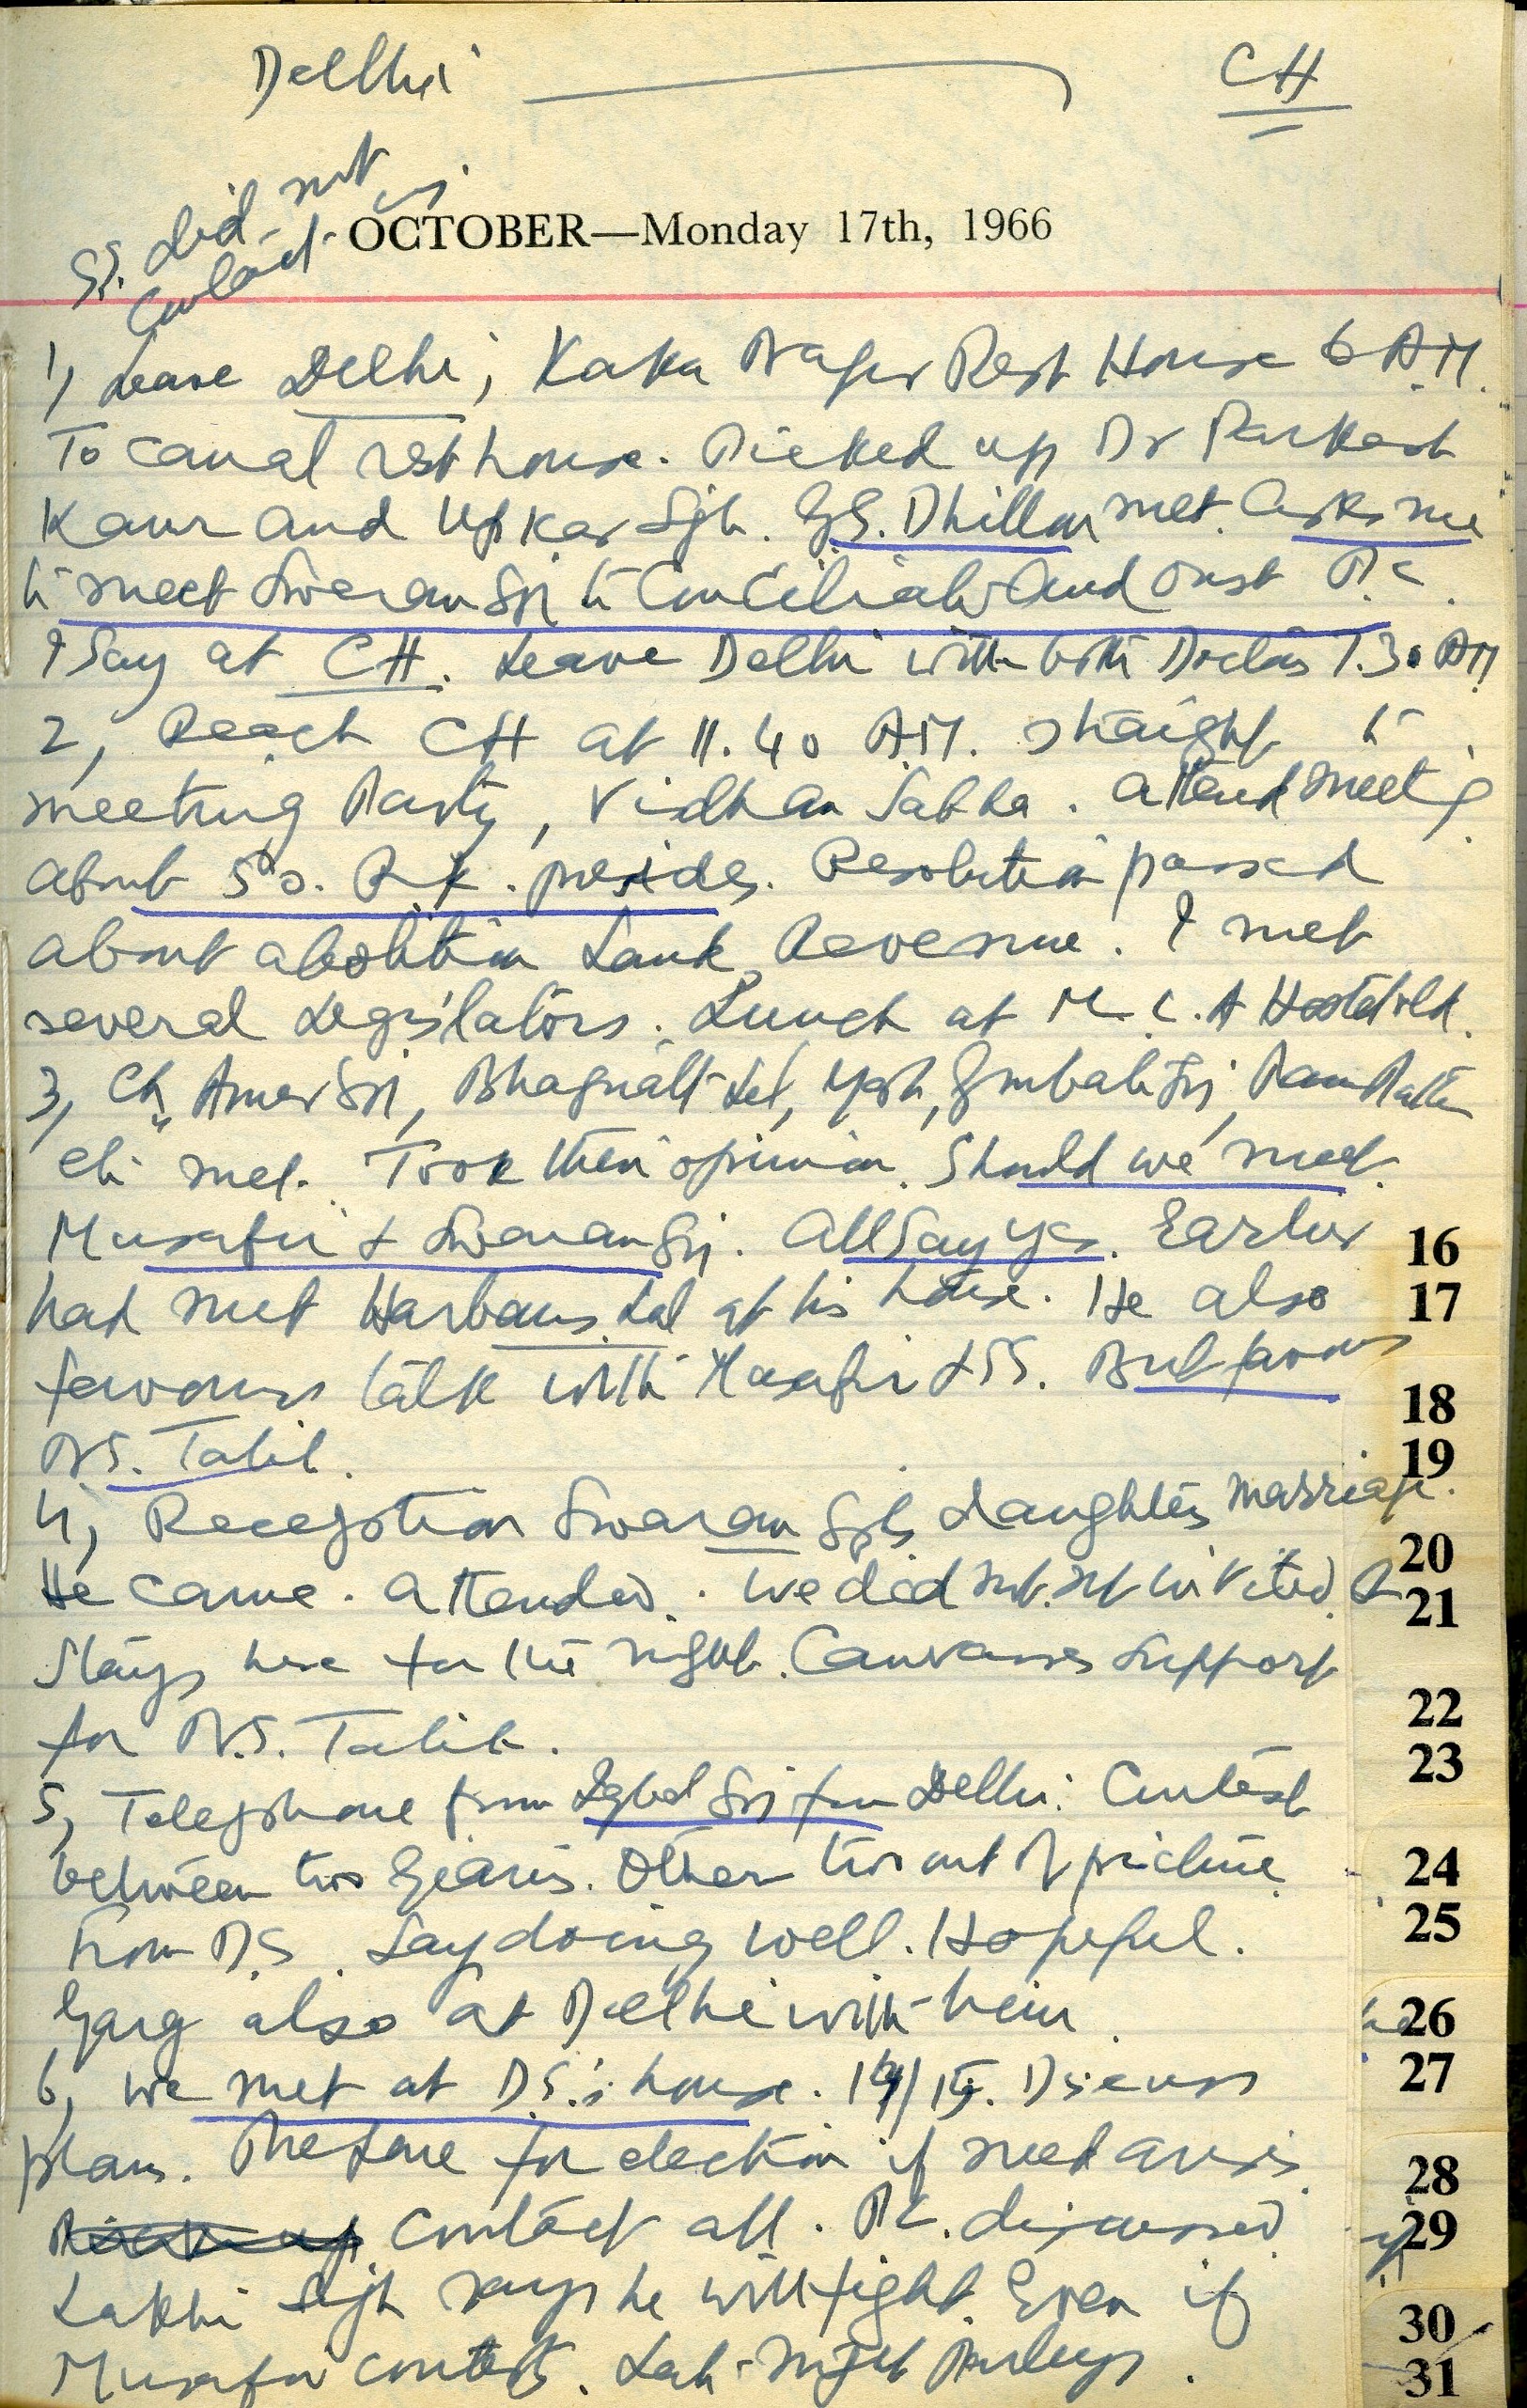 Delhi CH
SS. did not
contact us
OCTOBER—Monday 17th, 1966
1, Leave Delhi, Kaka Nagar Rest House 6 A.M.
To canal rest house. Picked up Dr Parkash
Kaur and Upkar Sgh. G.S. Dhillon met. Asks me
to meet Swaran Sgh to conciliate and oust
I say at CH. Leave Delhi with both Doctors 7.30 AM
2, Reach CH at 11.40 A.M. straight to
meeting Party, Vidhan Sabha. attend meeting
about 50. R.K. presides. Resolution passed
about abolition Land Revenue. I met
several Legislators. Lunch at M.L.A Hostel old.
3, Ch. Amar Sgh, Bhagnath Lal, Yash, Gurbaksh Sgh, Ram Rattan
etc met. Took their opinion. Should we meet
Musafir & Swaran Sgh. All say yes. Earlier
had met Harbans Lal at his house. He also
favours talk with Musafir & SS. But favours
N.S. Talib.
4, Reception Swaran Sgh's daughter's marriage.
He came. attended. We did not. not invited.
Stays here for the night. Canvasses support
for N.S. Talib.
5, Telephone from Iqbal Sgh from Delhi. Contest
between two Gianis. Other two out of picture
From D.S. Say doing well. Hopeful.
Garg also at Delhi with him.
6, We met at D.S.'s house. Discuss
plans. Prepare for election if need arises
contact all. discussed
Lakhi Sgh says he will fight. Even if
Musafir contests. Late night Parleys.
16
17
18
19
20
21
22
23
24
25
26
27
28
29
30
31